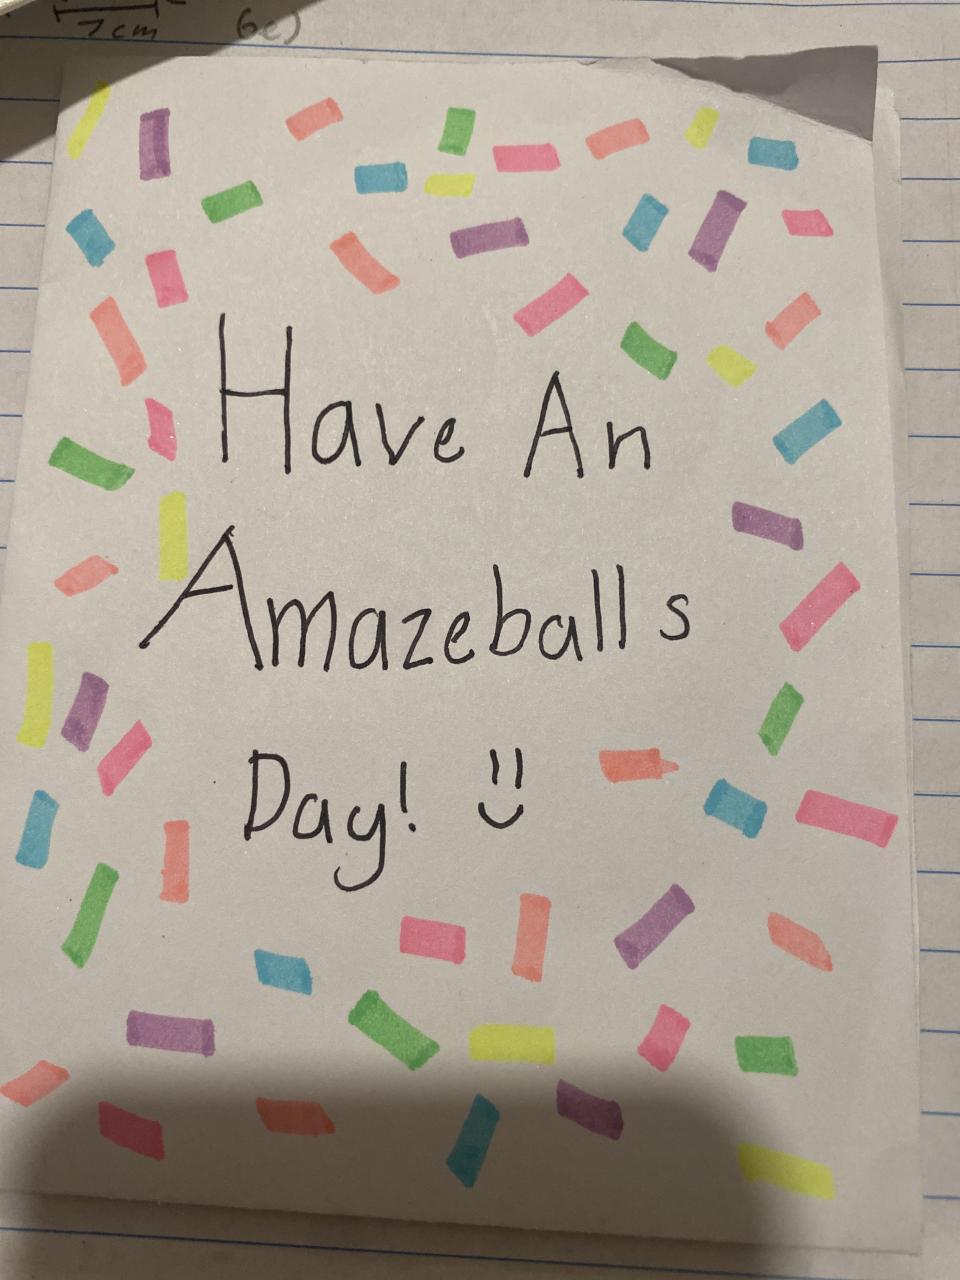 7cm 6c)
Have An
Amazeballs
Day! :)